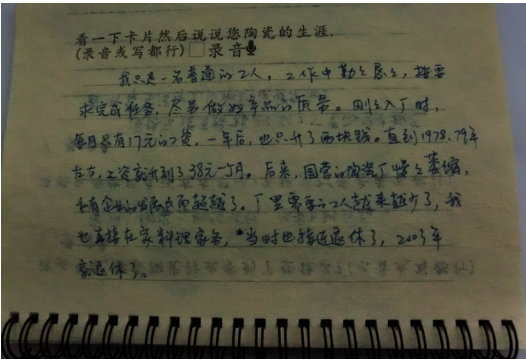 看一下卡片然后说说您陶瓷的生涯.
(录音或写都行)□录音
我只是一名普通的工人，工作中勤勤恳恳，按要
求完成任务，尽量做好产品的质量。刚刚入厂时，
每月只有17元的工资，一年后，也只升了两块钱。直到1978、79年
左右，工资就升到了38元一个月。后来，国营的陶瓷厂慢慢萎缩，
私有企业的发展也更超越了。厂里需要的工人越来越少了，我
也直接在家料理家务，当时也接近退休了，2003年
就退休了。